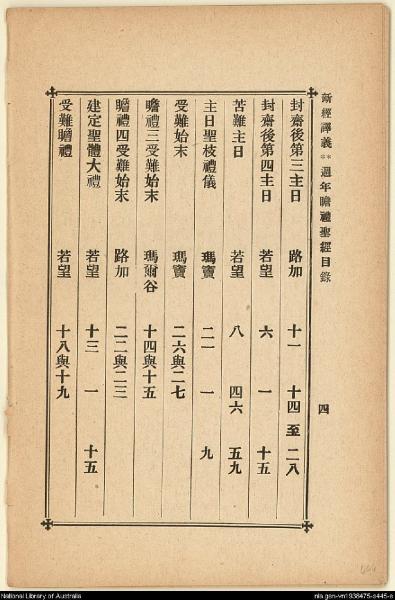 新經譯義 週年瞻禮聖經目錄 四
封齋後第三主日 路加 十一 十四至二八
封齋後第四主日 若望 六 一 十五
苦難主日 若望 八 四六 五九
主日聖枝禮儀 瑪竇 二一 一 九
受難始末 瑪竇 二六與二七
瞻禮三受難始末 瑪爾谷 十四與十五
瞻禮四受難始末 路加 二二與二三
建定聖體大禮 若望 十三 一 十五
受難瞻禮 若望 十八與十九
National Library of Australia
nla.gen-vn1938475-s445-e